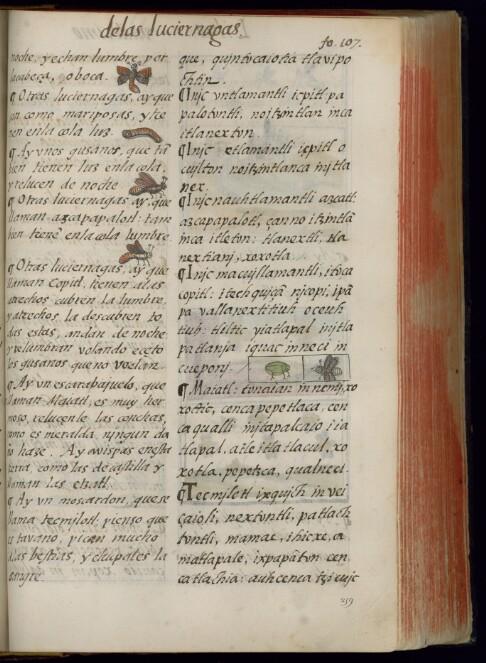 delas luciernagas
fo. 107.
noche, yechan lumbre por
lacabeça, oboca.
¶ Otras luciernagas, ayque
son como mariposas, yte
nen enla cola luz.
¶ Ay vnos gusanos, que tã
bien tienen luz enla cola,
yreluzen de noche
¶ Otras luciernagas ay, que
llaman azcapapalotl: tam
bien tienẽ enla cola lumbre.
¶ Otras luciernagas, ay que
llaman Copid, tienen alas
atrechos cubren la lumbre,
yatrechos, la descubren to
das estas, andan de noche
yrelumbran volando eceto
los gusanos que no vuelan.
¶ Ay vn escarabajuelo, que
llaman Maiatl, es muy her
moso, reluzenle las conchas,
como esmeralda, ningun da
ño haze. Ay avispas enesta
tierra, como las de castilla y
llaman las etzatl.
¶ Ay vn moscardon, quese
llama tecmilotl, pienso que
es tavano, pican mucho
alas bestias, y chupales la
sangre
que, quintocaiotia tlavipo
chtin.
¶ Injc vntlamantli icpitl, pa
palotvntli, noitzintlan inca
itlanextvn.
¶ Injc etlamantli icpitl o
cujlton noitzintlanca injtla
nex.
¶ Injc nauhtlamantli azcatl:
azcapapalotl, çanno itzintlã
inca itleton: tlanextli, tla
nextianj, xoxotla.
¶ Injc macujllamantli, itoca
copitl: itech quiça njcopi, ipã
pa vallanextitiuh oceuh
tiuh: tliltic yiatlapal injtla
patlanja iquac inneci in
cuepony.
¶ Maiatl: tonaian in nemj, xo
xoctic, cenca pepetlaca, cen
ca qualli injtapalcaio iia
tlapal, atle itlatlacul, xo
xotla, pepetzca, qualneci.
¶ Tecmjlotl ixquich in vei
çaioli, nextvntli, patlach
tvntli, mamae, ihicxe, a
matlapale, ixpapatvn cen
ca tlachia: auh cenca tzicujc
259